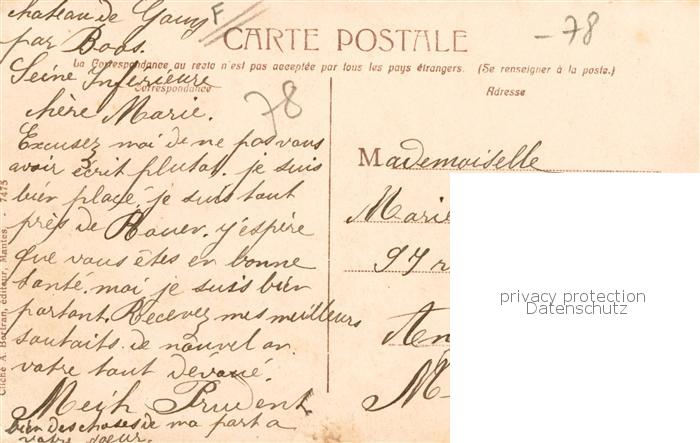 chateau de Gouy F
par Boos.
Seine Inferieure
CARTE POSTALE
-78
La Correspondance au recto n'est pas acceptée par tous les pays étrangers. (Se renseigner à la poste.)
Correspondance
Adresse
78
chère Marie.
Excusez moi de ne pas vous
avoir écrit plutot. je suis
bien placé, je suis tout
près de Rouen. j'espère
que vous êtes en bonne
santé. moi je suis bien
portant. Recevez mes meilleurs
souhaits de nouvel an
votre tout dévoué.
Prudent
bien des choses de ma part a
votre soeur.
Cliché A. Bertran, éditeur, Mantes. - 7475
Mademoiselle
Marie
97 r
An
M
privacy protection
Datenschutz